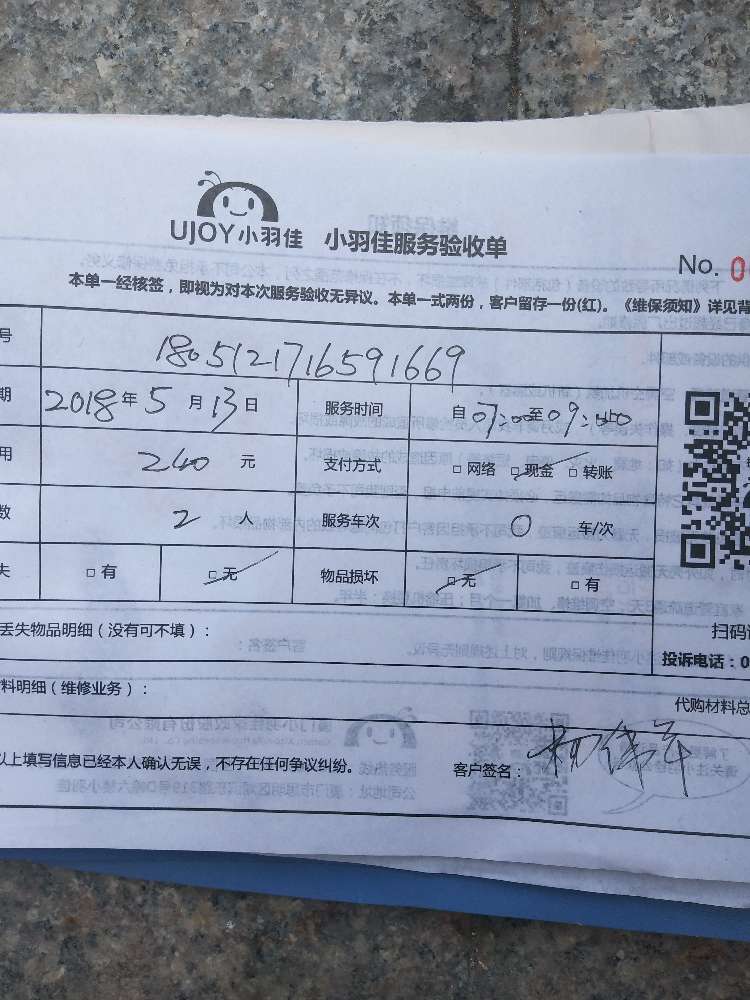 UJOY小羽佳 小羽佳服务验收单
No. 0
本单一经核签，即视为对本次服务验收无异议。本单一式两份，客户留存一份(红)。《维保须知》详见背
号 1805121716591669
期 2018年5月13日 服务时间 自07:00至09:
用 240元 支付方式 □网络 □现金 □转账
数 2人 服务车次 0 车/次
失 □有 □无 物品损坏 □无 □有
扫码
丢失物品明细（没有可不填）：
投诉电话：0
料明细（维修业务）： 代购材料总
以上填写信息已经本人确认无误，不存在任何争议纠纷。 客户签名：